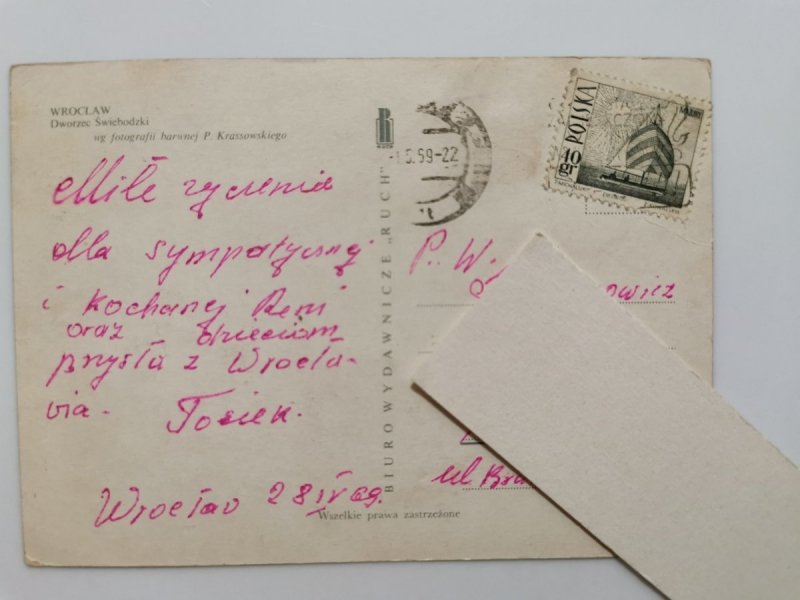 WROCŁAW
Dworzec Świebodzki
wg fotografii barwnej P. Krassowskiego
Miłe życzenia
dla sympatycznej
i kochanej Reni
oraz dzieciom
przysła z Wrocła-
wia. Tosiek.
Wrocław 28 IV 69.
BIURO WYDAWNICZE „RUCH"
RUCH
Wszelkie prawa zastrzeżone
-1.5.69-22
POLSKA
40 gr
P. W.
owicz
ul Bra